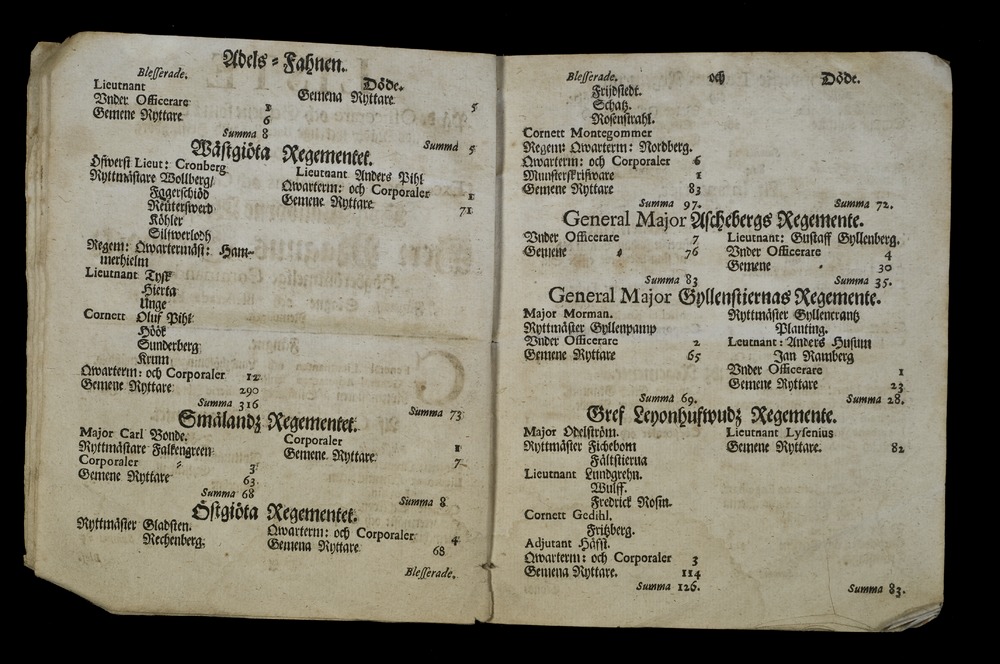 Adels=Fahnen.
Blesserade. Döde.
Lieutnant 1 Gemena Ryttare 5
Vnder Officerare 1
Gemene Ryttare 6
Summa 8 Summa 5
Wästgiöta Regementet.
Ofwerst Lieut: Cronberg Lieutnant Anders Pihl
Ryttmästare Wollberg/ Qwarterm: och Corporaler 1
Faggerschiöd Gemene Ryttare 71
Reüterswerd
Köhler
Silfwerlodh
Regem: Qwartermäst: Ham-
merhielm
Lieutnant Tysk
Hierta
Unge
Cornett Oluf Pihl
Höök
Sunderberg
Krum
Qwarterm: och Corporaler 12
Gemene Ryttare 290
Summa 316 Summa 73
Smålandz Regementet.
Major Carl Bonde. Corporaler 1
Ryttmästare Falkengreen Gemene Ryttare 7
Corporaler 3
Gemene Ryttare 63
Summa 68 Summa 8
Östgiöta Regementet.
Ryttmäster Gladsten. Qwarterm: och Corporaler 4
Rechenberg. Gemena Ryttare 68
Blesserade.
Blesserade. och Döde.
Frijdstedt.
Schatz.
Rosenstrahl.
Cornett Montegommer
Regem: Qwarterm: Nordberg.
Qwarterm: och Corporaler 6
Munsterskrifware 1
Gemene Ryttare 83
Summa 97. Summa 72.
General Major Aschebergs Regemente.
Vnder Officerare 7 Lieutnant: Gustaff Gyllenberg.
Gemene 76 Vnder Officerare 4
Gemene 30
Summa 83 Summa 35.
General Major Gyllenstiernas Regemente.
Major Morman. Ryttmäster Gyllencrantz
Ryttmäster Gyllenpamp Planting.
Vnder Officerare 2 Leutnant: Anders Husum
Gemene Ryttare 65 Jan Ramberg
Vnder Officerare 1
Gemene Ryttare 23
Summa 69. Summa 28.
Gref Leyonhufwudz Regemente.
Major Odelström. Lieutnant Lysenius
Ryttmäster Fichebom Gemene Ryttare. 82
Fältstierna
Lieutnant Lundgrehn.
Wulff.
Fredrick Rosin.
Cornett Gedihl.
Fritzberg.
Adjutant Häfst.
Qwarterm: och Corporaler 3
Gemena Ryttare. 114
Summa 126. Summa 83.